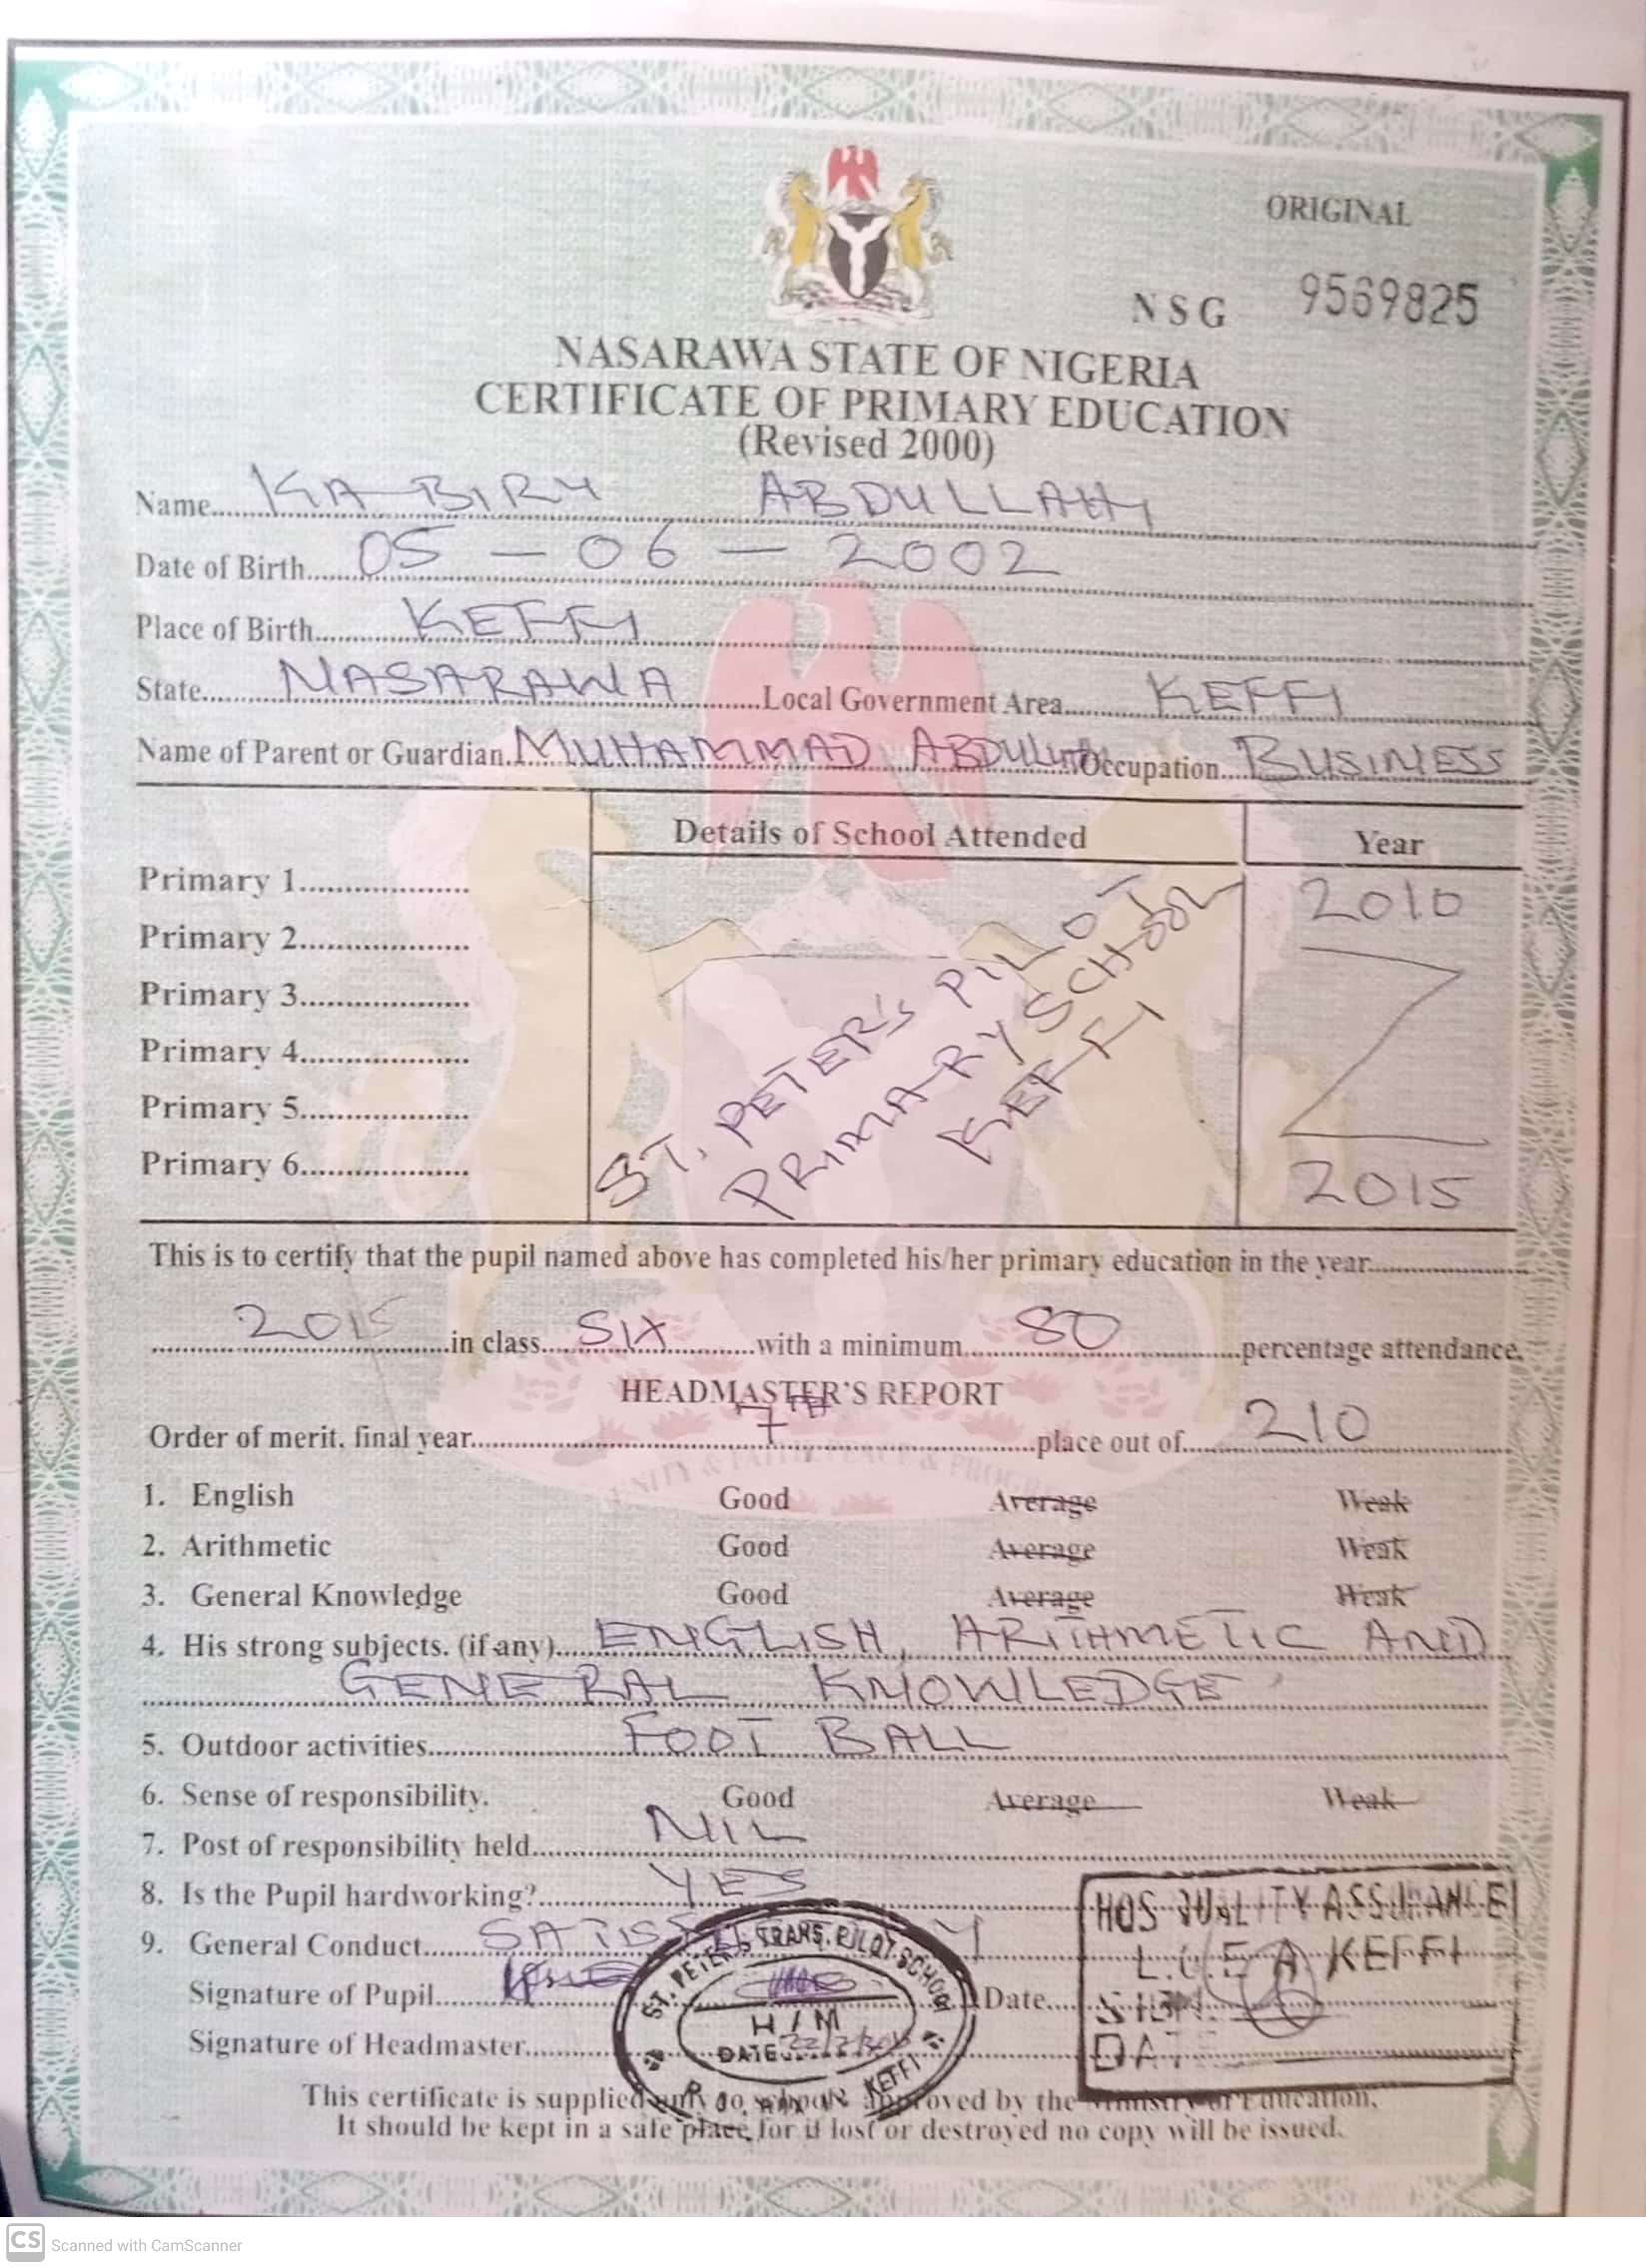 ORIGINAL
NSG 9569825
NASARAWA STATE OF NIGERIA
CERTIFICATE OF PRIMARY EDUCATION
(Revised 2000)
Name KABIRU ABDULLAHI
Date of Birth 05 - 06 - 2002
Place of Birth KEFFI
State NASARAWA Local Government Area KEFFI
Name of Parent or Guardian MUHAMMAD Occupation BUSINESS
Details of School Attended Year
Primary 1 2010
Primary 2
Primary 3
Primary 4
Primary 5
Primary 6 2015
ST. PETER'S PILOT
PRIMARY SCHOOL
KEFFI
This is to certify that the pupil named above has completed his/her primary education in the year
2015 in class SIX with a minimum 80 percentage attendance.
HEADMASTER'S REPORT
Order of merit. final year 7TH place out of 210
UNITY & FAITH PEACE &
1. English Good Average Weak
2. Arithmetic Good Average Weak
3. General Knowledge Good Average Weak
4. His strong subjects. (if any) ENGLISH, ARITHMETIC AND
GENERAL KNOWLEDGE
5. Outdoor activities FOOT BALL
6. Sense of responsibility. Good Average Weak
7. Post of responsibility held NIL
8. Is the Pupil hardworking? YES
9. General Conduct
Signature of Pupil Date
Signature of Headmaster
ST. PETER'S TRANS. PILOT SCHOOL
H/M
DATE
KEFFI
HOS QUALITY ASSURANCE
L.G.E.A KEFFI
SIGN
DATE
This certificate is supplied only to schools approved by the Ministry of Education.
It should be kept in a safe place, for if lost or destroyed no copy will be issued.
CS Scanned with CamScanner